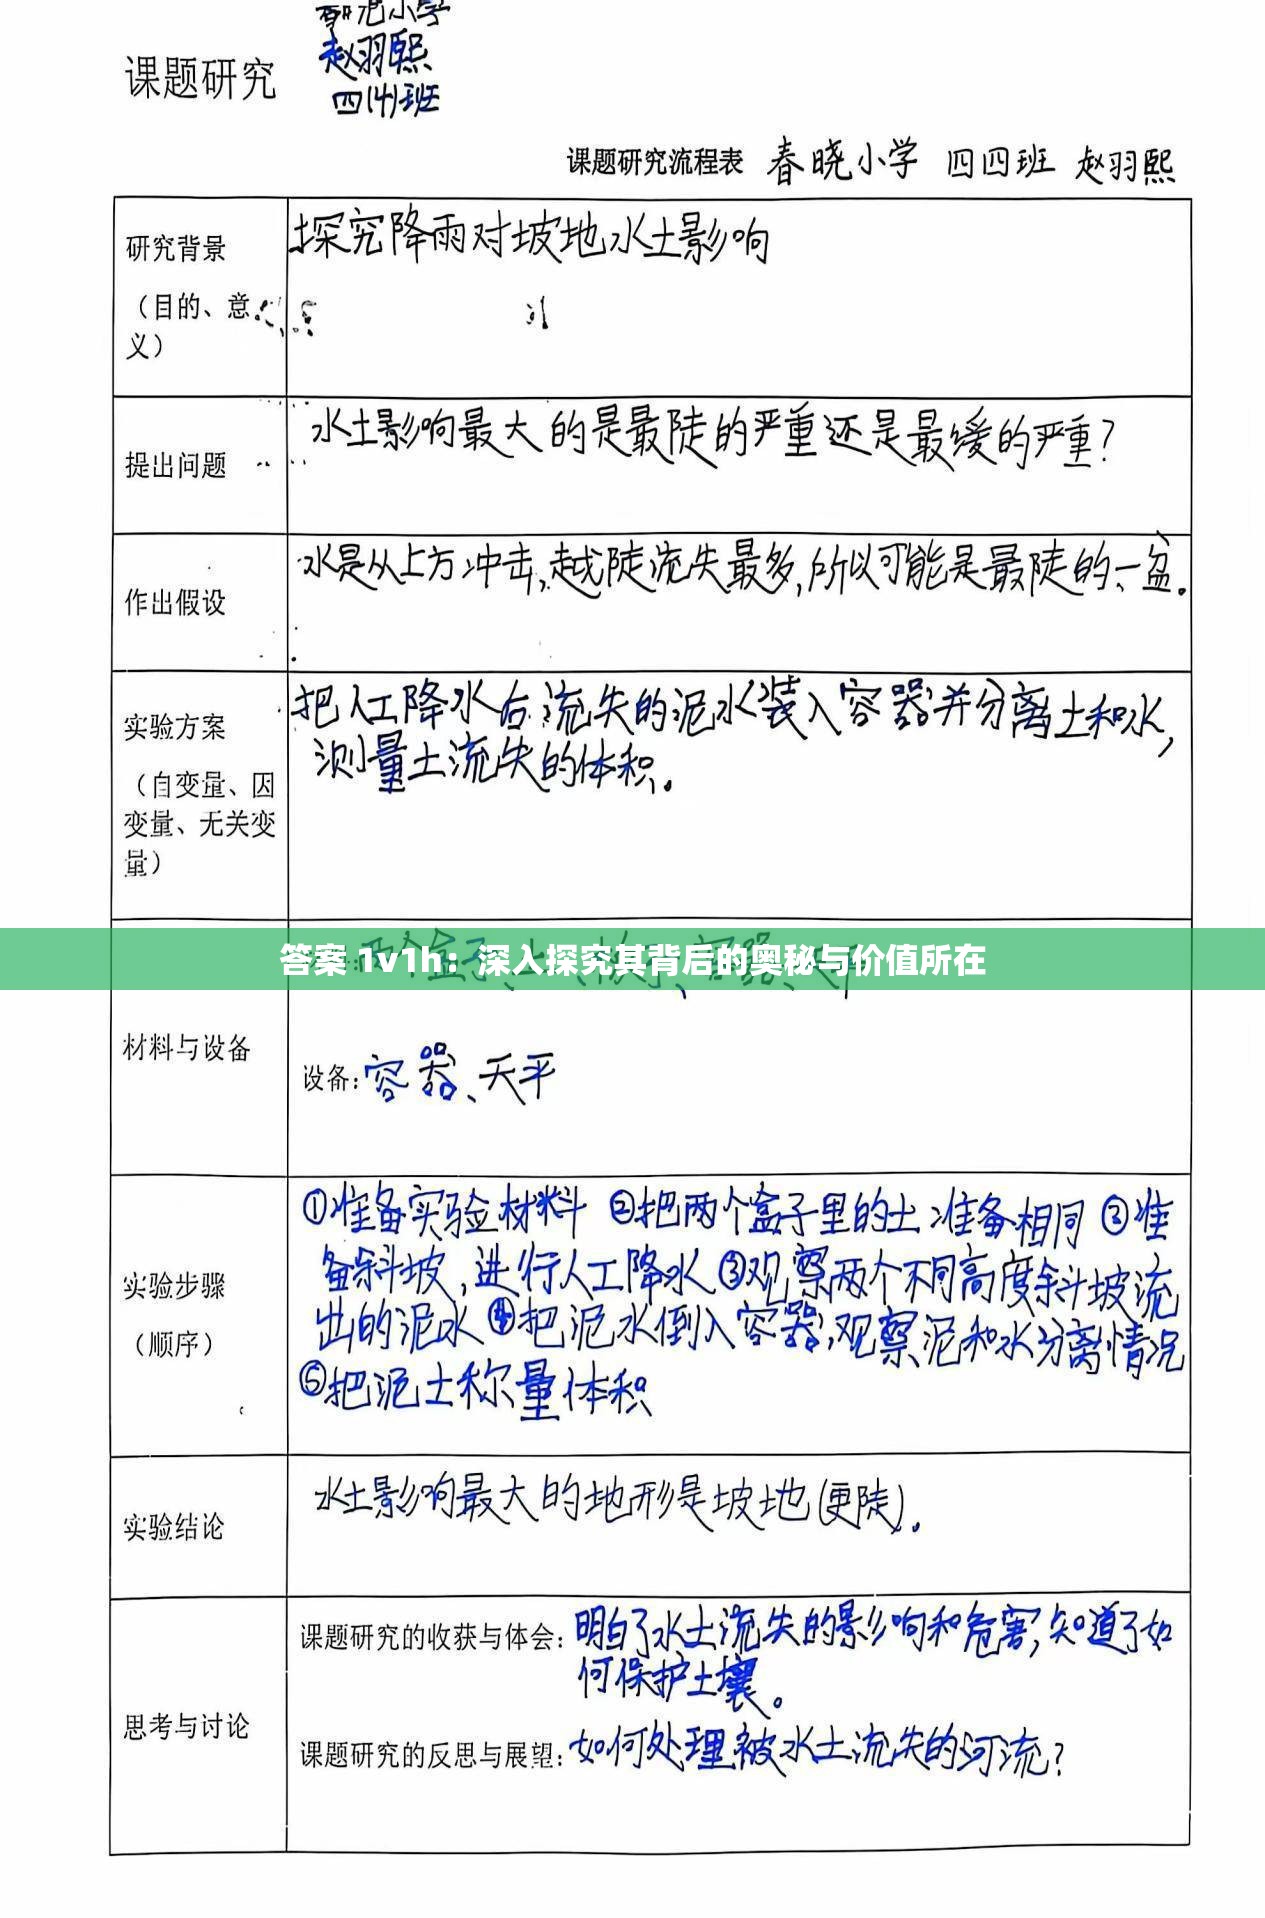 课题研究
赵羽熙
四(4)班
课题研究流程表 春晓小学 四四班 赵羽熙
研究背景
（目的、意义）
探究降雨对坡地水土影响
提出问题
水土影响最大的是最陡的严重还是最缓的严重?
作出假设
水是从上方冲击,越陡流失最多,所以可能是最陡的一盆.
实验方案
（自变量、因变量、无关变量）
把人工降水后流失的泥水装入容器并分离土和水,
测量土流失的体积.
答案 1v1h：深入探究其背后的奥秘与价值所在
材料与设备
设备:容器、天平
实验步骤
（顺序）
①准备实验材料 ②把两个盒子里的土准备相同 ②准
备斜坡,进行人工降水 ③观察两个不同高度斜坡流
出的泥水 ④把泥水倒入容器,观察泥和水分离情况
⑤把泥土称量体积
实验结论
水土影响最大的地形是坡地(更陡).
思考与讨论
课题研究的收获与体会:明白了水土流失的影响和危害,知道了如
何保护土壤。
课题研究的反思与展望:如何处理被水土流失的河流?